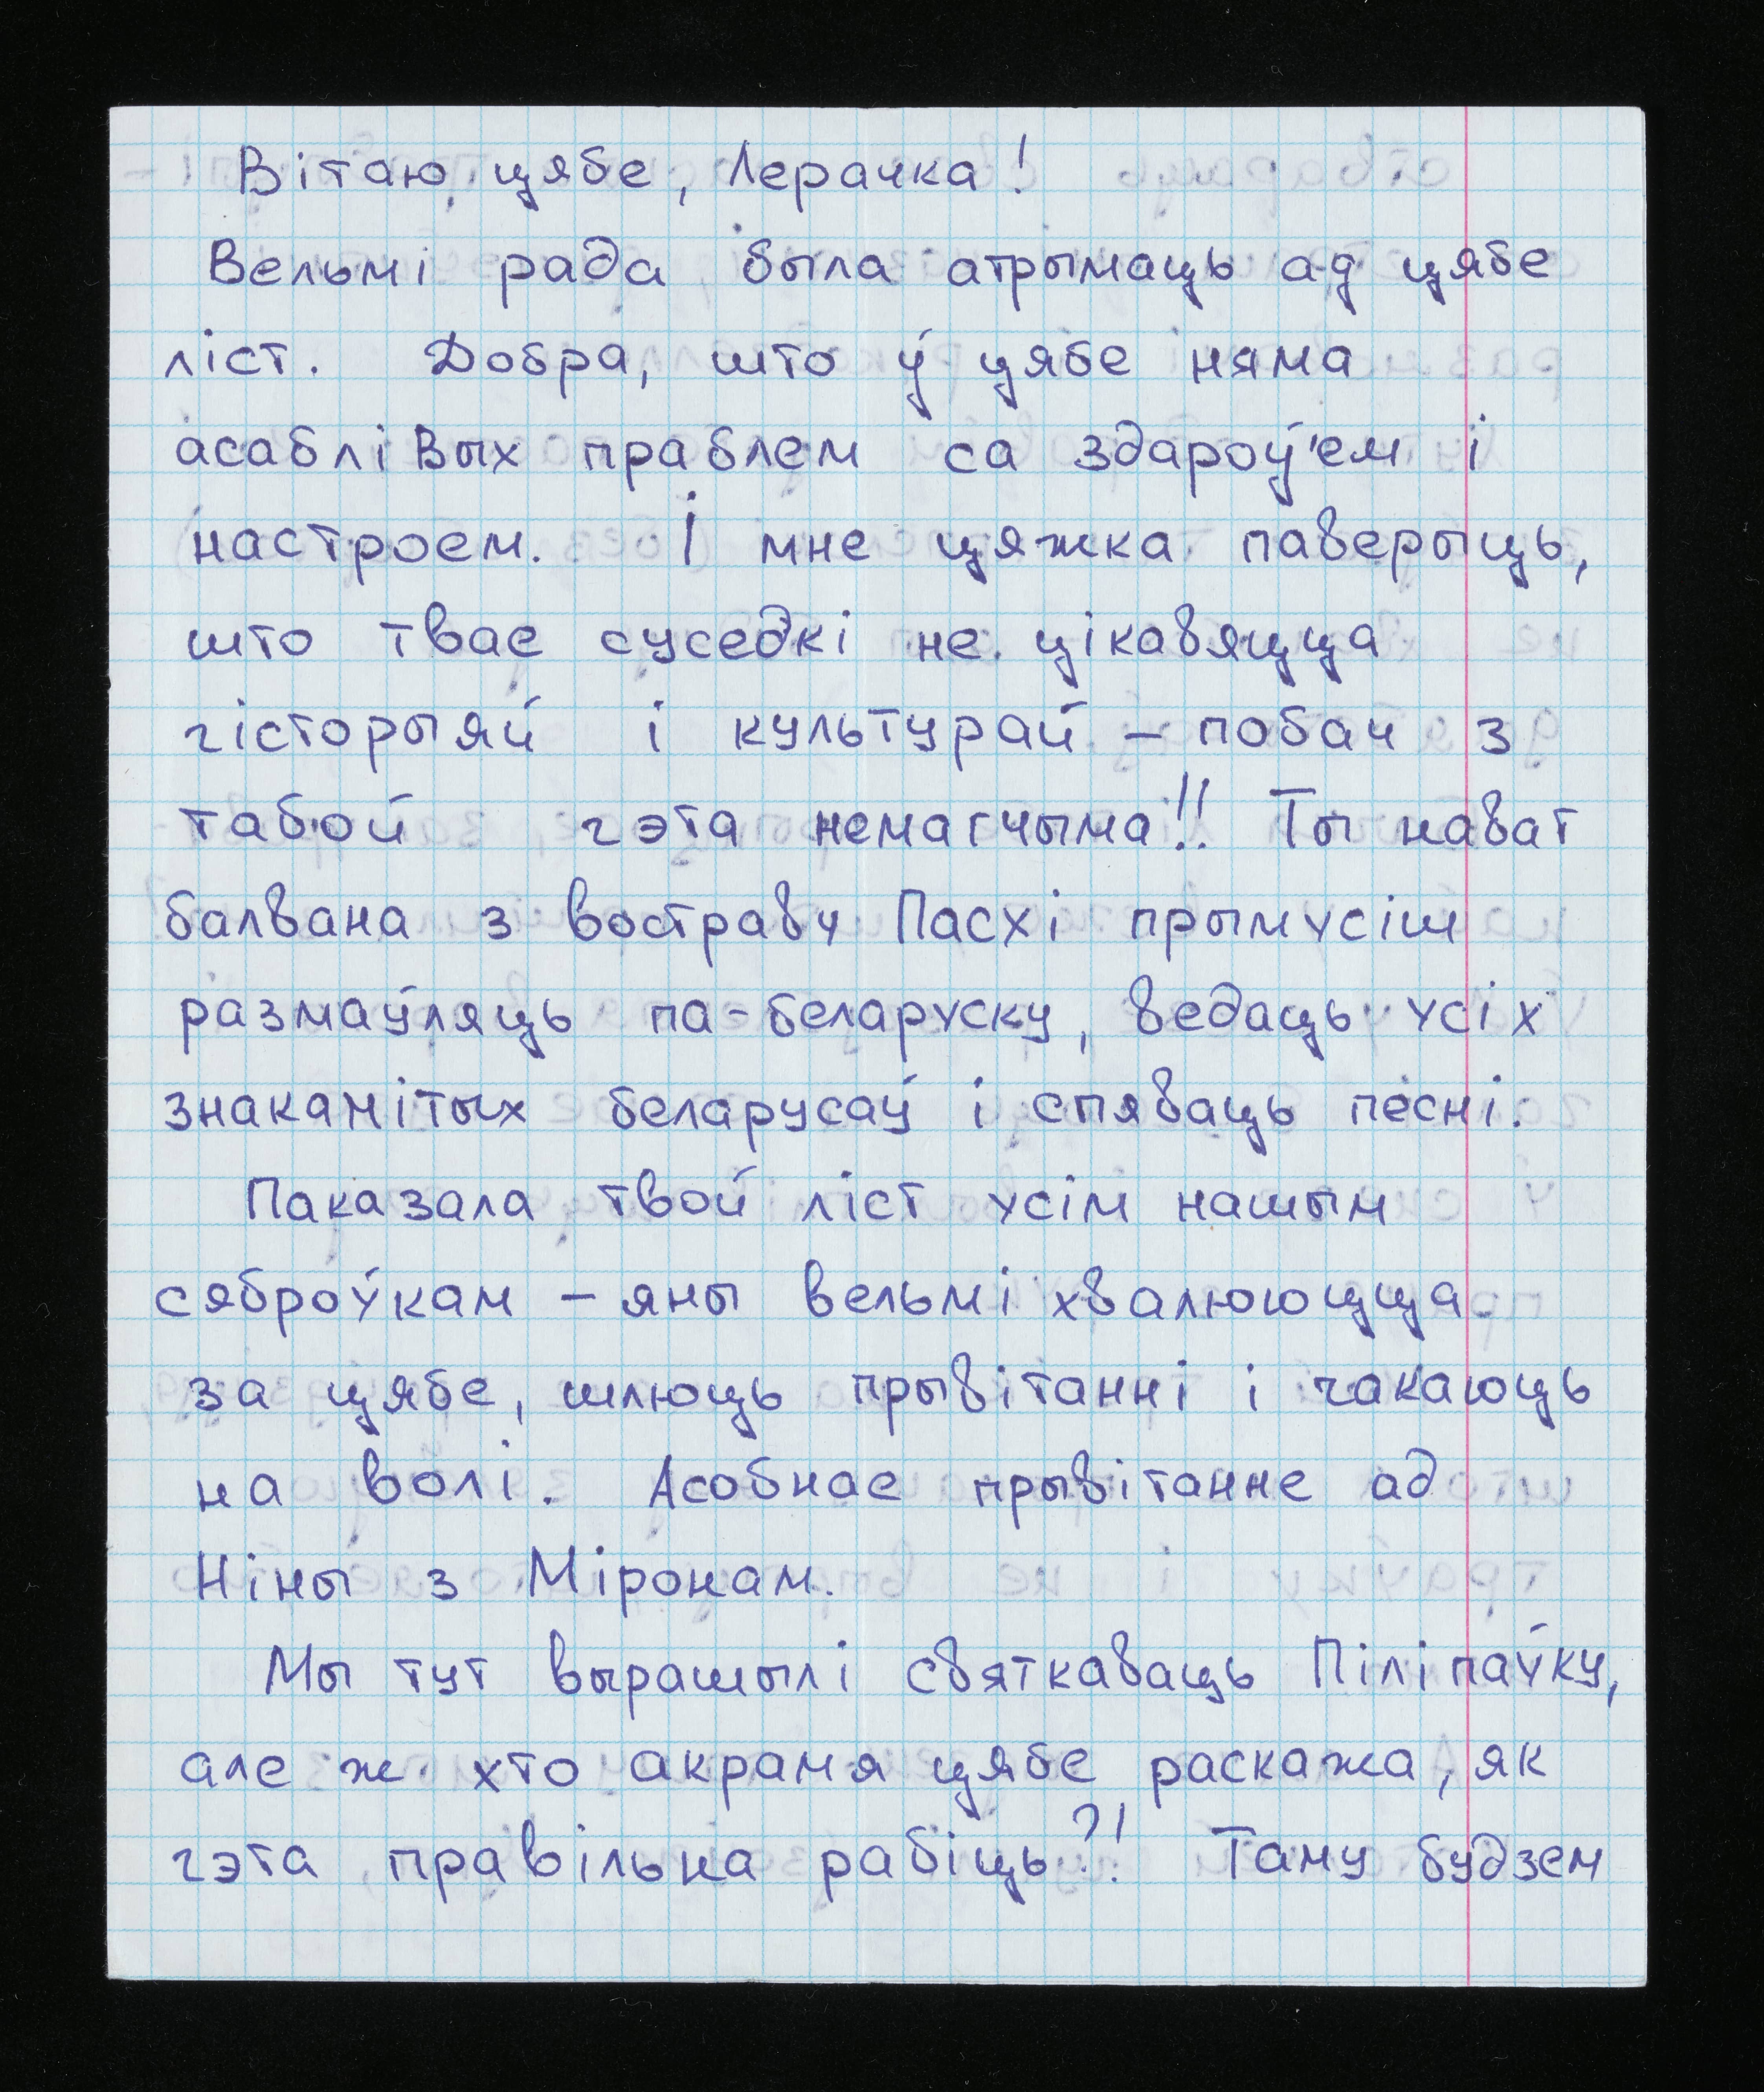 Вітаю цябе, Лерачка!
Вельмі рада была атрымаць ад цябе
ліст. Добра, што ў цябе няма
асаблівых праблем са здароўем і
настроем. І мне цяжка паверыць,
што твае суседкі не цікавяцца
гісторыяй і культурай – побач з
табой гэта немагчыма!! Ты нават
балвана з вострава Пасхі прымусіш
размаўляць па-беларуску, ведаць усіх
знакамітых беларусаў і спяваць песні.
Паказала твой ліст усім нашым
сяброўкам – яны вельмі хвалююцца
за цябе, шлюць прывітанні і чакаюць
на волі. Асобнае прывітанне ад
Ніны з Міронам.
Мы тут вырашылі святкаваць Піліпаўку,
але ж хто акрамя цябе раскажа, як
гэта правільна рабіць?! Таму будзем